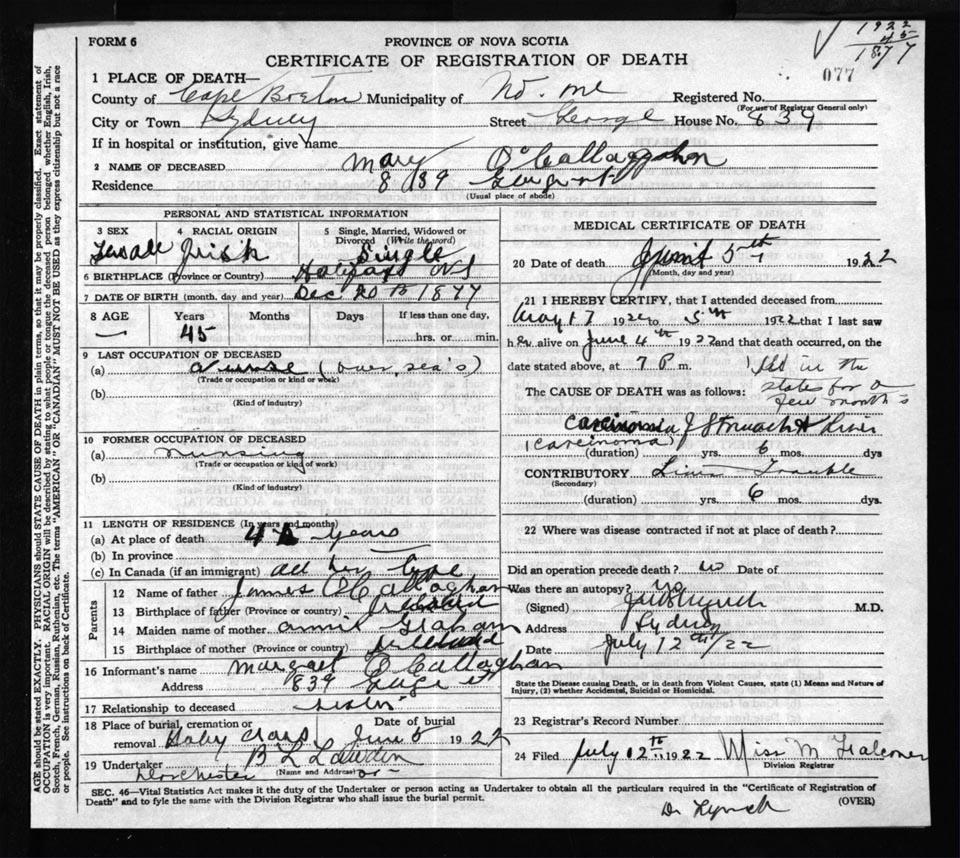 1922
45
1877
077
FORM 6
PROVINCE OF NOVA SCOTIA
CERTIFICATE OF REGISTRATION OF DEATH
1 PLACE OF DEATH—
County of Cape Breton Municipality of No. one Registered No.
(For use of Registrar General only)
City or Town Sydney Street George House No. 839
If in hospital or institution, give name
2 NAME OF DECEASED Mary O'Callaghan
Residence 839 George St
(Usual place of abode)
PERSONAL AND STATISTICAL INFORMATION
3 SEX Female 4 RACIAL ORIGIN Irish 5 Single, Married, Widowed or Divorced (Write the word) Single
6 BIRTHPLACE (Province or Country) Halifax NS
7 DATE OF BIRTH (month, day and year) Dec 20th 1877
8 AGE Years Months Days If less than one day,
— 45 hrs. or min.
9 LAST OCCUPATION OF DECEASED
(a) a nurse (over sea's)
(Trade or occupation or kind or work)
(b)
(Kind of industry)
10 FORMER OCCUPATION OF DECEASED
(a) nursing
(Trade or occupation or kind of work)
(b)
(Kind of industry)
11 LENGTH OF RESIDENCE (In years and months)
(a) At place of death 4 years
(b) In province
(c) In Canada (if an immigrant) all her life
Parents
12 Name of father James O'Callaghan
13 Birthplace of father (Province or country) Ireland
14 Maiden name of mother Annie Graham
15 Birthplace of mother (Province or country) Ireland
16 Informant's name Margaret O'Callaghan
Address 839 George St
17 Relationship to deceased sister
18 Place of burial, cremation or removal Holy Cross Date of burial June 5 1922
19 Undertaker B L
(Name and Address)
Dorchester
MEDICAL CERTIFICATE OF DEATH
20 Date of death June 5th 1922
(Month, day and year)
21 I HEREBY CERTIFY, that I attended deceased from
May 17 192 to 5th 1922 that I last saw
her alive on June 4th 1922 and that death occurred, on the
date stated above, at 7 P. m. in the
The CAUSE OF DEATH was as follows: states for a
few months
Carcinoma of Stomach & Liver
(carcinoma)
(duration) yrs. 6 mos. dys
CONTRIBUTORY Liver Trouble
(Secondary)
(duration) yrs. 6 mos. dys.
22 Where was disease contracted if not at place of death?
Did an operation precede death? no Date of
Was there an autopsy? no
(Signed) Lynch M.D.
Address Sydney
Date July 12th/22
State the Disease causing Death, or in death from Violent Causes, state (1) Means and Nature of
Injury, (2) whether Accidental, Suicidal or Homicidal.
23 Registrar's Record Number
24 Filed July 12th 1922 Miss M Falconer
Division Registrar
SEC. 46—Vital Statistics Act makes it the duty of the Undertaker or person acting as Undertaker to obtain all the particulars required in the "Certificate of Registration of
Death" and to fyle the same with the Division Registrar who shall issue the burial permit.
(OVER)
Dr Lynch
AGE should be stated EXACTLY. PHYSICIANS should STATE CAUSE OF DEATH in plain terms, so that it may be properly classified. Exact statement of
OCCUPATION is very important. RACIAL ORIGIN will be described by stating to what people or tongue the deceased person belonged whether English, Irish,
Scotch, French, German, Russian, Ruthenian, etc. The terms "AMERICAN" OR "CANADIAN" MUST NOT BE USED as they express citizenship but not a race
or people. See instructions on back of Certificate.